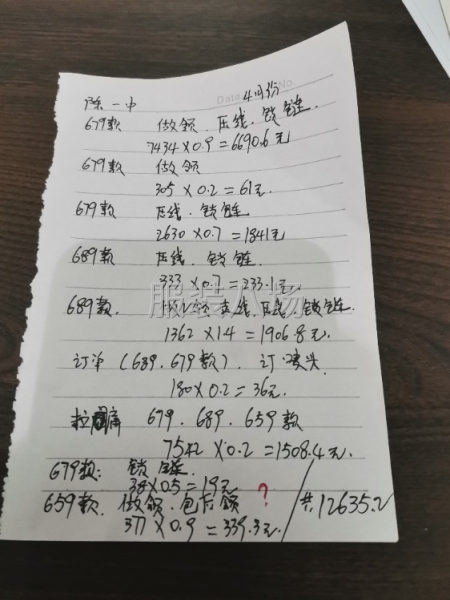 Date. No.
陈一中 4月份
679款 做领.压线.锁链.
7434×0.9=6690.6元
679款 做领
305×0.2=61元
679款 压线.锁链
2630×0.7=1841元
689款 压线.锁链.
333×0.7=233.1元.
689款. 支线.压线.锁链.
1362×1.4=1906.8元.
订单(689.679款).订
180×0.2=36元.
679.689.659款
7542×0.2=1508.4元.
679款: 锁链.
38×0.5=19元
659款.做领.包后领 ?
377×0.9=339.3元. 共12635.2
服装小场